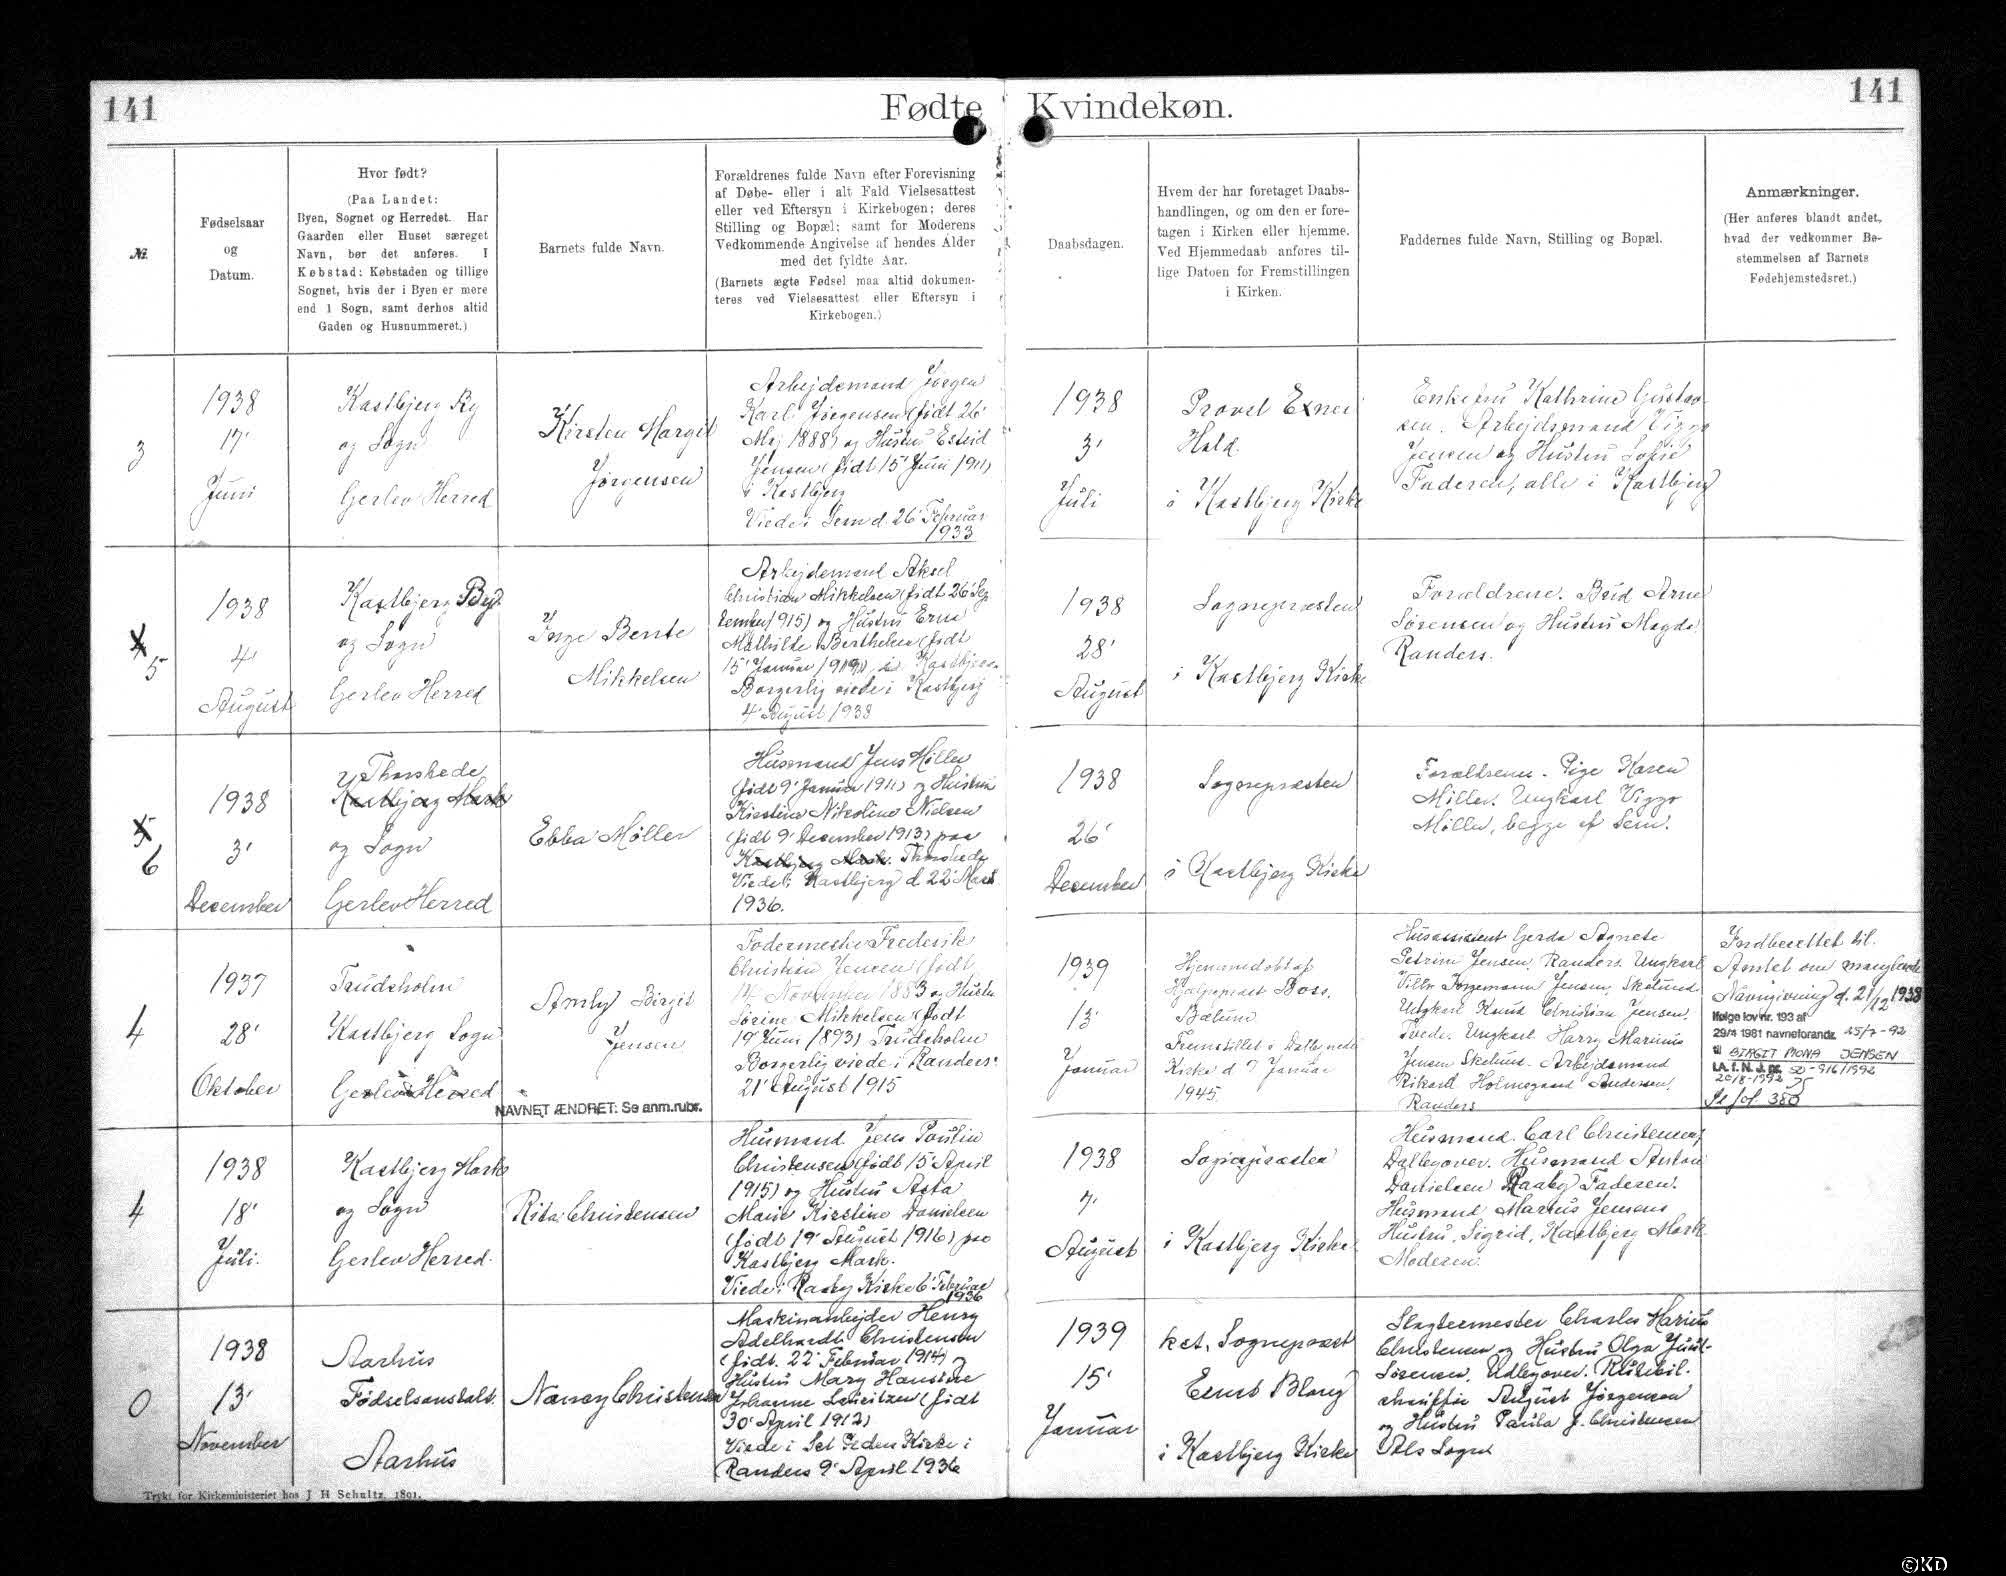 141
Fødte Kvindekøn.
141
№
Fødselsaar
og
Datum.
Hvor født?
(Paa Landet:
Byen, Sognet og Herredet. Har
Gaarden eller Huset særeget
Navn, bør det anføres. I
Købstad: Købstaden og tillige
Sognet, hvis der i Byen er mere
end 1 Sogn, samt derhos altid
Gaden og Husnummeret.)
Barnets fulde Navn.
Forældrenes fulde Navn efter Forevisning
af Døbe- eller i alt Fald Vielsesattest
eller ved Eftersyn i Kirkebogen; deres
Stilling og Bopæl; samt for Moderens
Vedkommende Angivelse af hendes Alder
med det fyldte Aar.
(Barnets ægte Fødsel maa altid dokumen-
teres ved Vielsesattest eller Eftersyn i
Kirkebogen.)
Daabsdagen.
Hvem der har foretaget Daabs-
handlingen, og om den er fore-
tagen i Kirken eller hjemme.
Ved Hjemmedaab anføres til-
lige Datoen for Fremstillingen
i Kirken.
Faddernes fulde Navn, Stilling og Bopæl.
Anmærkninger.
(Her anføres blandt andet,
hvad der vedkommer Be-
stemmelsen af Barnets
Fødehjemstedsret.)
3
1938
17'
Juni
Kastbjerg By
og Sogn
Gerlev Herred
Kirsten Margit
Jørgensen
Arbejdsmand Jørgen
Karl Jørgensen (født 26'
Maj 1888) og Hustru Estrid
Jensen (født 15' Juni 1911)
i Kastbjerg
Viede i Sem d. 26' Februar
1933
1938
3'
Juli
Provst Exner
Hald.
i Kastbjerg Kirke
Enkefru Kathrine Gustav-
sen. Arbejdsmand Viggo
Jensen og Hustru Sofie
Faderen, alle i Kastbjerg
4
5
1938
4'
August
Kastbjerg By
og Sogn
Gerlev Herred
Inge Bente
Mikkelsen
Arbejdsmand Aksel
Christian Mikkelsen (født 26' Sep
tember 1915) og Hustru Erna
Mathilde Berthelsen (født
15' Januar 1919), i Kastbjerg
Borgerlig viede i Kastbjerg
4' August 1938
1938
28'
August
Sognepræsten
i Kastbjerg Kirke
Forældrene. Bud Arne
Sørensen og Hustru Magda.
Randers.
5
6
1938
3'
December
Thorshede
Kastbjerg Mark
og Sogn
Gerlev Herred
Ebba Møller
Husmand Jens Møller
(født 9' Januar 1911) og Hustru
Kirstine Nikoline Nielsen
(født 9' December 1913) paa
Kastbjerg Mark. Thorshede
Viede i Kastbjerg d. 22' Marts
1936.
1938
26'
December
Sognepræsten
i Kastbjerg Kirke
Forældrene. Pige Karen
Møller. Ungkarl Viggo
Møller, begge af Sem.
4
1937
28'
Oktober
Trudsholm
Kastbjerg Sogn
Gerlev Herred
Birgit
Jensen
NAVNET ÆNDRET: Se anm.rubr.
Fodermester Frederik
Christian Jensen (født
14' November 1883 og Hustru
Sørine Mikkelsen (født
19' Juni 1893) Trudsholm
Borgerlig viede i Randers
21' August 1915
1939
13'
Januar
Hjemmedøbt af
Hjælpepræst Boss,
Bælum
Fremstillet i Dalbyneder
Kirke d. 7' Januar
1945.
Husassistent Gerda Agnete
Petrine Jensen, Randers. Ungkarl
Villy Jensen, Skelund.
Ungkarl Knud Christian Jensen,
Tvede. Ungkarl Harry Marinus
Jensen Skelund. Arbejdsmand
Rikard Holmegaard Andersen,
Randers
Indberettet til
Amtet om manglende
Navngivning d. 21/12 1938
Ifølge lov nr. 193 af
29/4 1981 navneforandr. 15/7-92
til BIRGIT MONA JENSEN
I.A. f. N. J. nr. 50-916/1992
20/8-1992
Se fol. 380
4
1938
18'
Juli.
Kastbjerg Mark
og Sogn
Gerlev Herred.
Rita Christensen
Husmand Jens Poulin
Christensen (født 15' April
1915) og Hustru Asta
Marie Kirstine Danielsen
(født 19' August 1916) paa
Kastbjerg Mark.
Viede i Raaby Kirke 6' Februar
1936
1938
7'
August
Sognepræsten
i Kastbjerg Kirke
Husmand Carl Christensen,
Dalbyover. Husmand Anton
Danielsen Raaby Faderen.
Husmand Marius Jensens
Hustru, Sigrid, Kastbjerg Mark.
Moderen.
0
1938
13'
November
Aarhus
Fødselsanstalt.
Aarhus
Nancy Christensen
Maskinarbejder Henry
Adelhardt Christensen
(født. 22' Februar 1914) og
Hustru Mary Hansine
Johanne Lauritzen (født
30' April 1912)
Viede i Sct Peders Kirke i
Randers 9' April 1936
1939
15'
Januar
kst. Sognepræst
Ernst Blauz
i Kastbjerg Kirke
Slagtermester Charles Marius
Christensen og Hustru Olga Juul-
Sørensen, Udbyover. Rutebil-
chauffør August Jørgensen
og Hustru Paula f. Christensen
Als Sogn
Trykt for Kirkeministeriet hos J H Schultz. 1891.
©KD